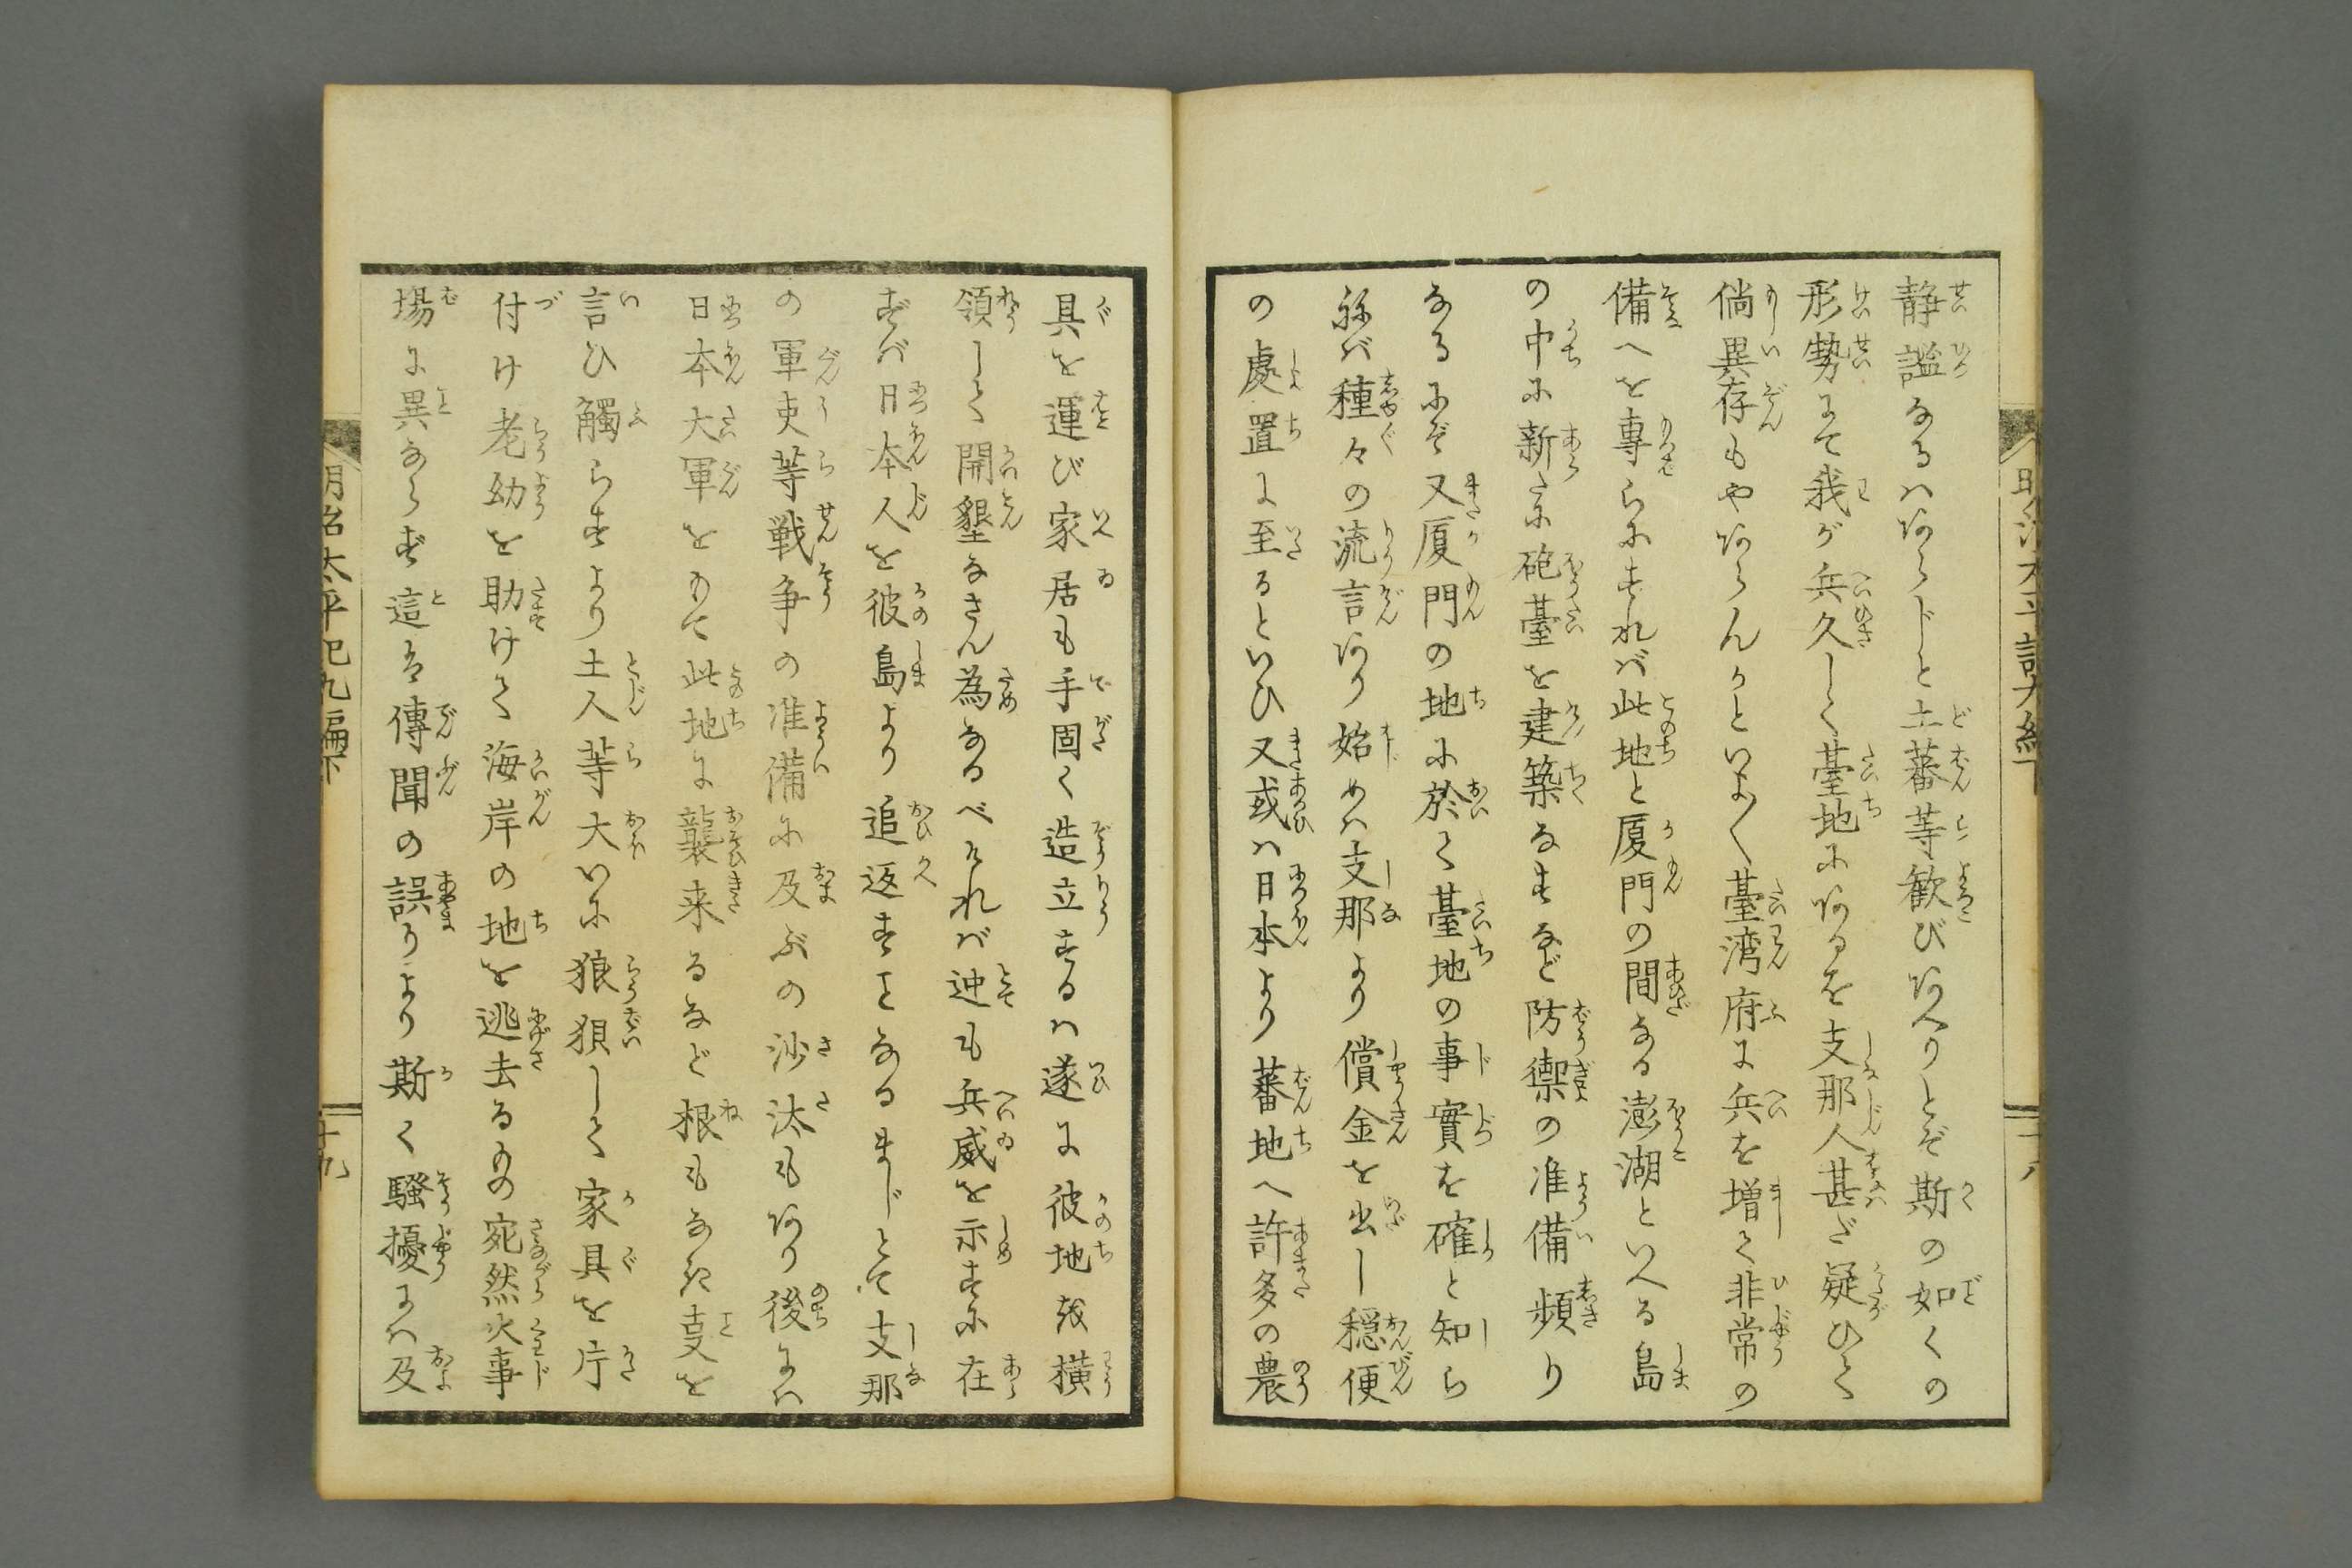 静謐なるはあらじと土蕃等歓びあへりとぞ斯の如くの
形勢にて我が兵久しく臺地にあるを支那人甚だ疑ひて
倘異存もやあらんかといよ〱臺湾府に兵を増て非常の
備へを専らにすれば此地と厦門の間なる澎湖といへる島
の中に新たに砲臺を建築なすなど防禦の准備頻り
なるにぞ又厦門の地に於て臺地の事實を確と知ら
ねば種々の流言あり始めは支那より償金を出し穏便
の處置に至るといひ又或は日本より蕃地へ許多の農
具を運び家居も手固く造立するは遂に彼地を横
領して開墾なさん為なるべければ迚も兵威を示すに在
ずば日本人を彼島より追返すことなるまじとて支那
の軍吏等戦争の准備に及ぶの沙汰もあり後には
日本大軍をもて此地に襲来るなど根もなき事を
言ひ觸らすより土人等大いに狼狽して家具を片
付け老幼を助けて海岸の地を逃去るもの宛然火事
場に異ならず這は傳聞の誤りより斯く騒擾には及
明治太平記九編下
十九